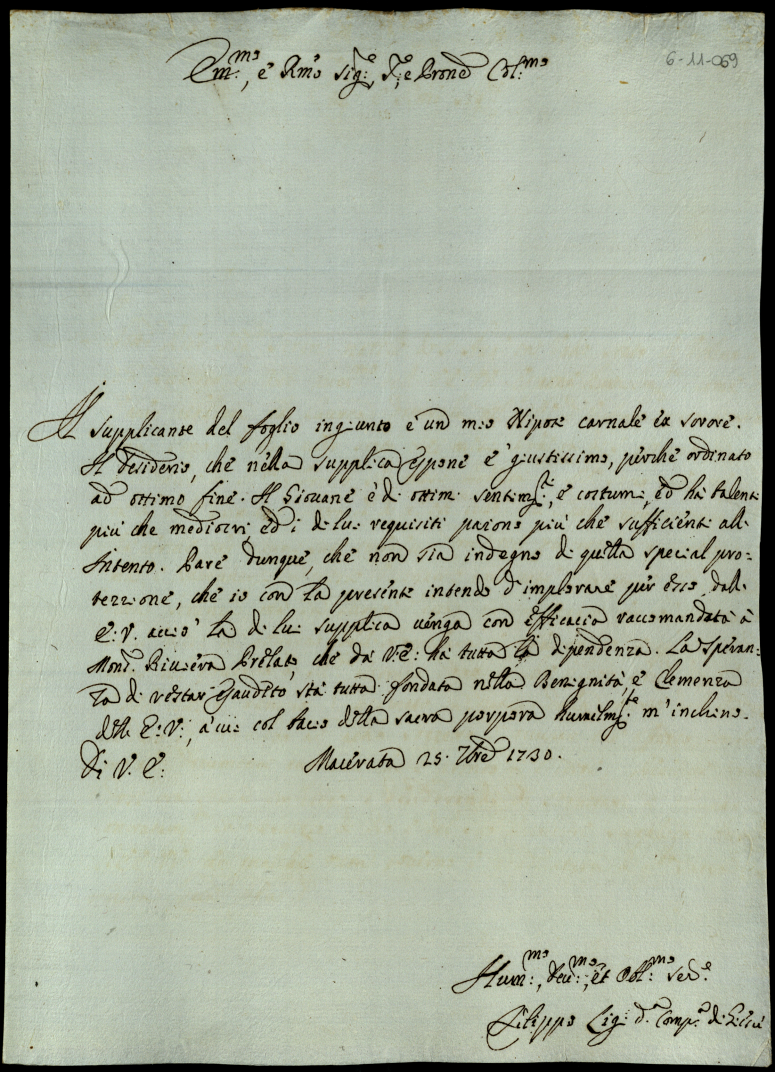 Em:mo, e Rmo Sig:re, Sr:e e Prone Col:mo
6-11-069
Il supplicante del foglio ingiunto è un mio Nipote carnale ex sorore.
Il desiderio, che nella supplica espone è giustissimo, perche ordinato
ad ottimo fine. Il Giovane è di ottimi sentim:ti, e costumi, ed ha talenti
più che mediocri, ed i di lui requisiti paiono più che sufficienti all'
Intento. Pare dunque, che non sia indegno di quella special pro:
tezzione, che io con la presente intendo d'implorare per esso dall'
E:V. acciò la di lui supplica venga con efficacia raccomandata à
Mons:r Riviera Prelato, che da V:E: ha tutta la dipendenza. La speran:
za di restar esaudito stà tutta fondata nella Benignità, e Clemenza
dell' E:V:, à cui col bacio della sacra porpora humilm:te m'inchino.
Di V. E: Macerata 25. 7bre 1730.
Hum:mo, Deu:mo, et Obl:mo Ser:e
Filippo d:a Comp:a di Giesù